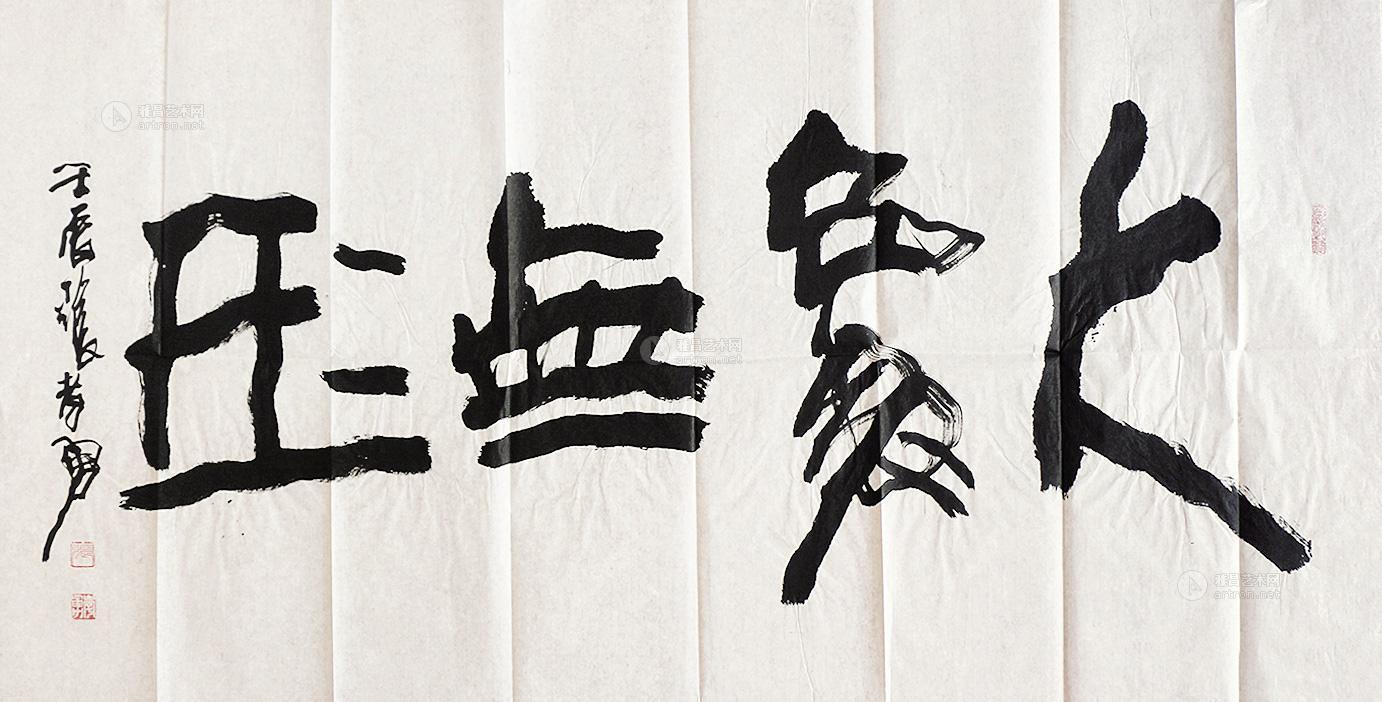 大象無形
壬辰張孝勇
雅昌艺术网
artron.net
雅昌艺术网
artron.net
雅昌艺术网
artron.net